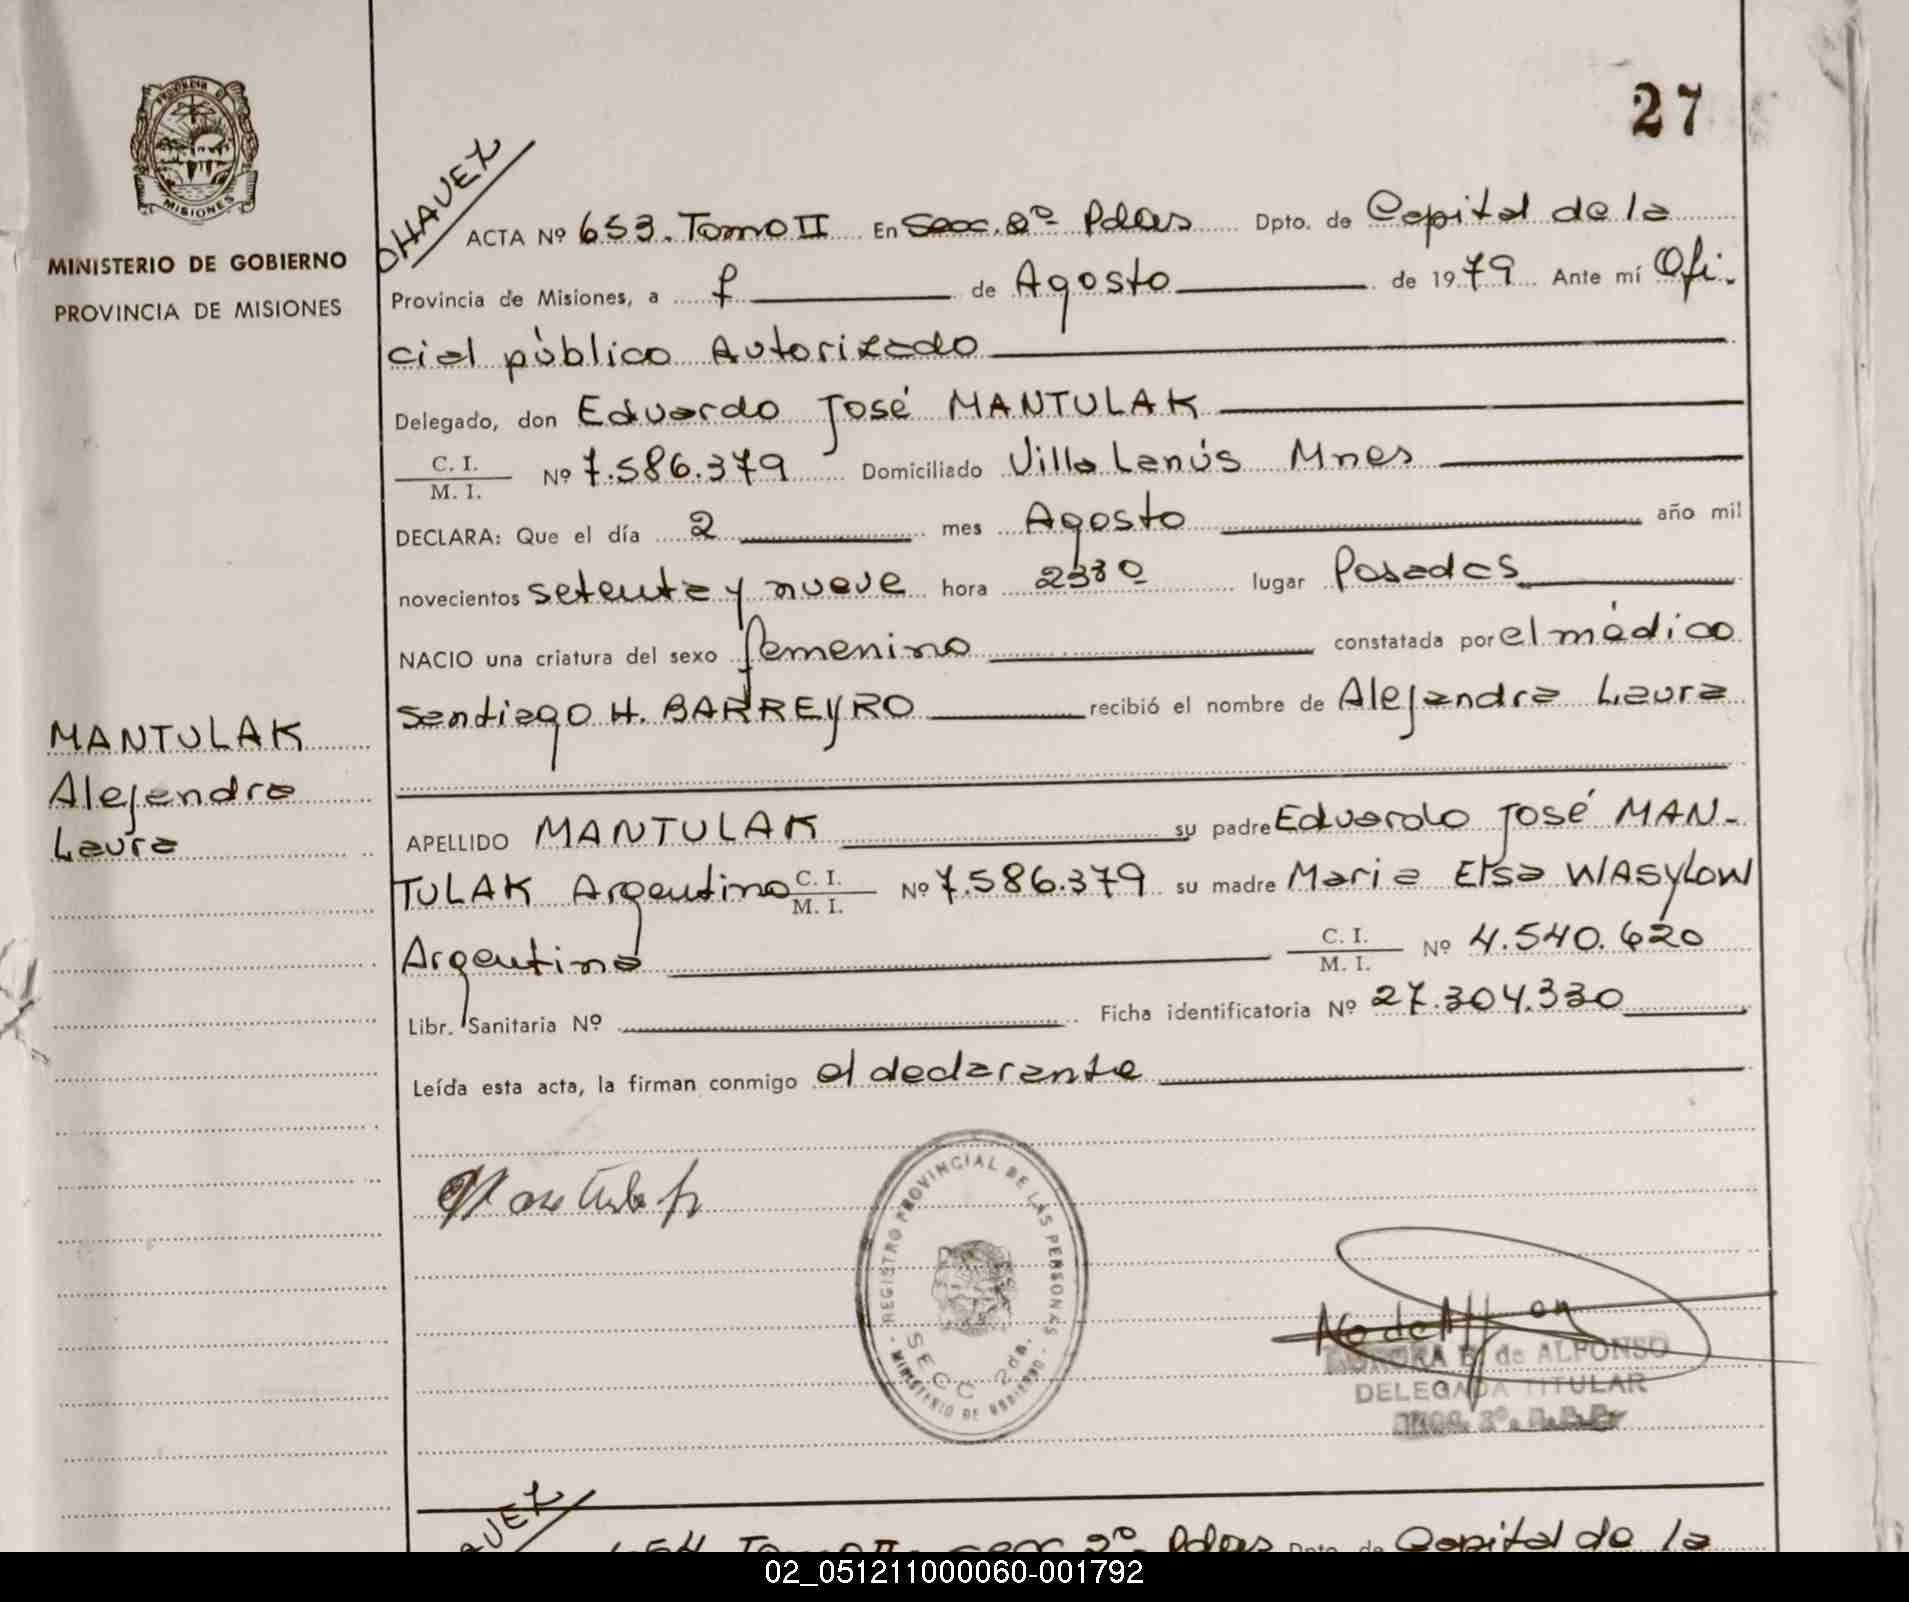 27
CHAVEZ
PROVINCIA DE
MISIONES
MINISTERIO DE GOBIERNO
PROVINCIA DE MISIONES
ACTA Nº 653. Tomo II En Secc. 2º Pdas Dpto. de Capital de la
Provincia de Misiones, a 7 de Agosto de 1979 Ante mí Ofi-
cial público Autorizado
Delegado, don Eduardo José MANTULAK
C. I.
M. I. Nº 7.586.379 Domiciliado Villa Lanús Mnes
DECLARA: Que el día 2 mes Agosto año mil
novecientos setenta y nueve hora 2330 lugar Posadas
NACIO una criatura del sexo femenino constatada por el médico
Santiago H. BARREYRO recibió el nombre de Alejandra Laura
MANTULAK
Alejandra
Laura
APELLIDO MANTULAK su padre Eduardo José MAN-
TULAK Argentino C. I.
M. I. Nº 7.586.379 su madre Maria Elsa WASYLOW
Argentina C. I.
M. I. Nº 4.540.620
Libr. Sanitaria Nº Ficha identificatoria Nº 27.304.330
Leída esta acta, la firman conmigo el declarante
REGISTRO PROVINCIAL DE LAS PERSONAS
SECC 2da.
- MINISTERIO DE GOBIERNO -
B. de ALFONSO
DELEGADA TITULAR
AVEZ
654 Tomo II secc 2º Pdas Dpto. de Capital de la
02_051211000060-001792